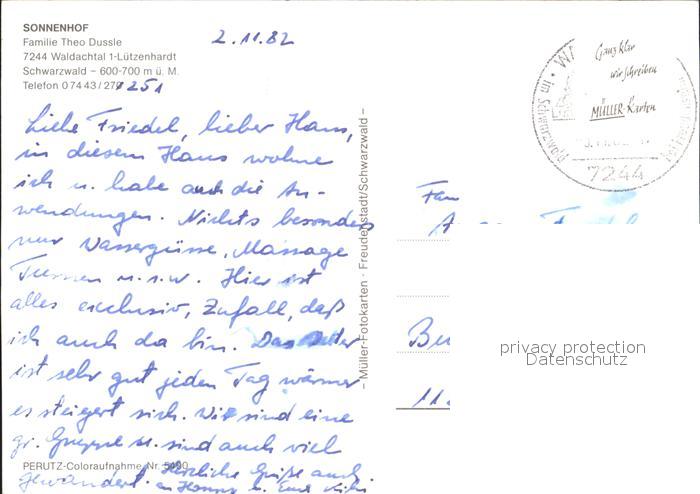 SONNENHOF
Familie Theo Dussle
7244 Waldachtal 1-Lützenhardt
Schwarzwald – 600-700 m ü. M.
Telefon 0 74 43 / 27
1251
2.11.82
Liebe Friedel, lieber Hans,
in diesem Haus wohne
ich u. habe auch die An-
wendungen. Nichts besonders
nur Wassergüsse, Massage
Turnen u.s.w. Hier ist
alles exclusiv, Zufall, daß
ich auch da bin. Das
ist sehr gut jeden Tag wärmer
es steigert sich. Wir sind eine
gr. Gruppe u. sind auch viel
gewandert. Herzliche Grüße auch
an u. Eure
PERUTZ-Coloraufnahme Nr. 5490
– Müller-Fotokarten - Freudenstadt/Schwarzwald –
Ganz klar
wir schreiben
MÜLLER-Karten
im Schwarzwald
7244
Fam
A
Bu
11.
privacy protection
Datenschutz